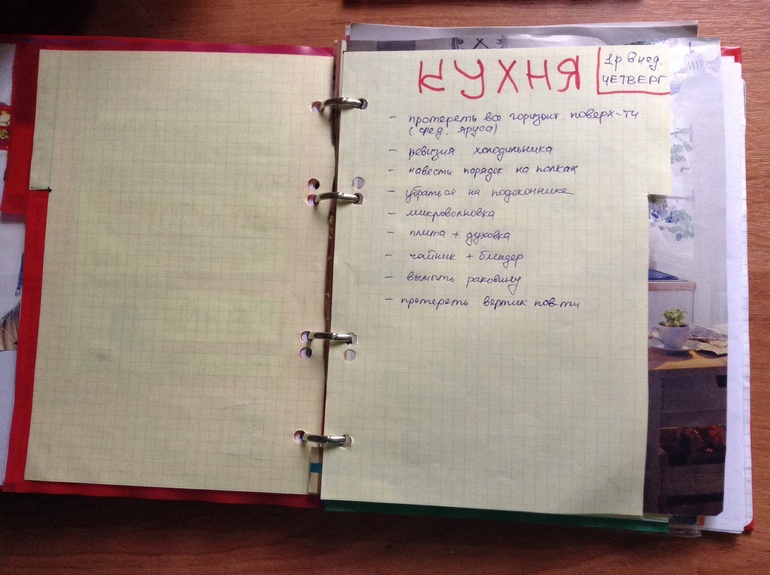 КУХНЯ
1р в нед.
ЧЕТВЕРГ
- протереть все горизонт. поверх-ти
(сред. яруса)
- ревизия холодильника
- навести порядок на полках
- убраться на подоконнике
- микроволновка
- плита + духовка
- чайник + блендер
- вымыть раковину
- протереть вертик пов-ти